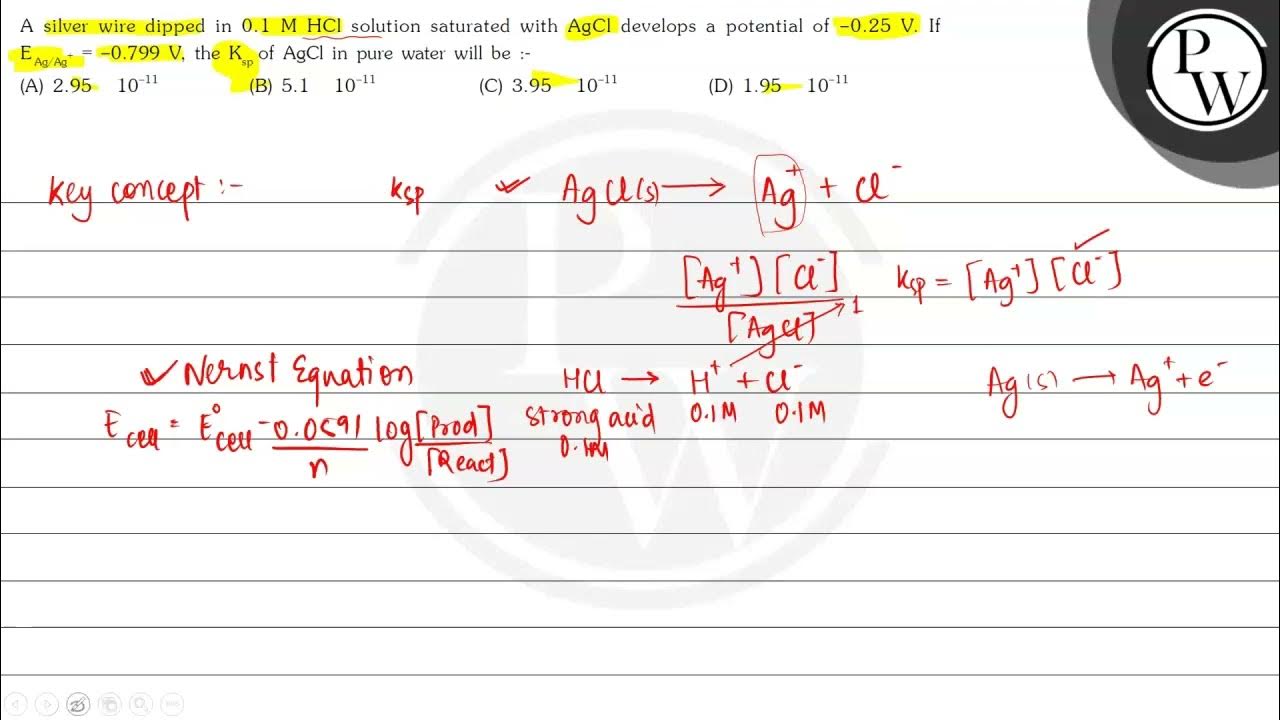 A silver wire dipped in 0.1 M HCl solution saturated with AgCl develops a potential of –0.25 V. If
E Ag/Ag⁺ = –0.799 V, the Ksp of AgCl in pure water will be :-
(A) 2.95 10⁻¹¹ (B) 5.1 10⁻¹¹ (C) 3.95 10⁻¹¹ (D) 1.95 10⁻¹¹
P
W
Key concept :- Ksp ✓ AgCl(s) ⟶ Ag⁺ + Cl⁻
[Ag⁺] [Cl⁻] Ksp = [Ag⁺] [Cl⁻] ✓
[AgCl] 1
✓ Nernst Equation HCl → H⁺ + Cl⁻ Ag(s) → Ag⁺ + e⁻
strong acid 0.1M 0.1M
0.1M
E cell = E° cell – 0.0591 log [Prod]
n [React]
P
W